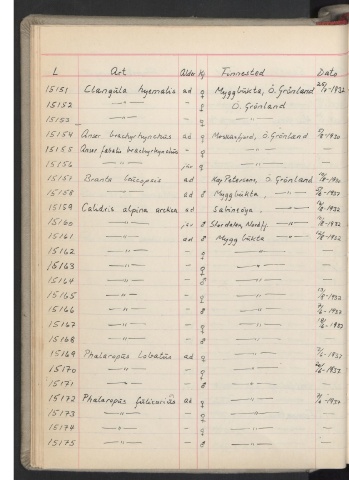 L Art Alder Kj Finnested Dato
15151 Clangula hyemalis ad ♀ Myggbukta, Ö. Grönland -1932
15152 —"— — ♀ Ö. Grönland —
15153 —"— — ♀ —"— —
15154 Anser brachyrhynchus ad ♀ Moskusfjord, Ö. Grönland -1930
15155 Anser fabalis brachyrhynchus — —"— —
15156 —"— juv ♀ —"— —
15157 Branta leucopsis ad Kap Petersens, Ö. Grönland
15158 —"— ad ♂ Myggbukta, —"— -1932
15159 Calidris alpina arctica ad Sabineöya, —"— -1932
15160 —"— juv ♂ Stordalen, —"—
15161 —"— ad ♂ Myggbukta
15162 —"— — ♀ —"— —
15163 —"— — ♀ —"— —
15164 —"— — ♂ —"— —
15165 —"— — ♀ —"— -1932
15166 —"— — ♂ —"— -1932
15167 —"— — ♀ —"— -1932
15168 —"— — ♂ —"— —
15169 Phalaropus lobatus ad ♀ —"— -1932
15170 —"— — ♀ —"— -1932
15171 —"— — ♂ —"— —
15172 Phalaropus fulicarius ad ♀ —"— -1932
15173 —"— — ♀ —"— —
15174 —"— — ♀ —"— —
15175 —"— — ♂ —"— —